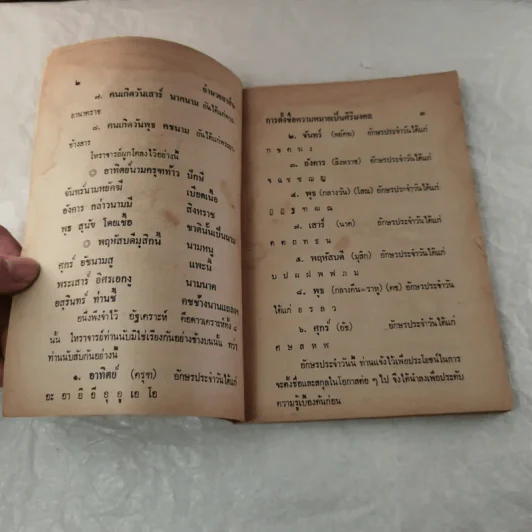 ๒
๗. คนเกิดวันเสาร์ นาคนาม อันได้แก่
๘. คนเกิดวันพุธ คชนาม อันได้แก่
ช้างสาร
โหราจารย์ผูกโคลงไว้อย่างนี้
๏ อาทิตย์นามครุฑท้าว ปักษี
จันทร์นามพยัคฆี เบียดเนื้อ
อังคาร กล่าวนามมี สิงหราช
พุธ สุนัข โดยเชื้อ ชาตินั้นเป็นนาม
๏ พฤหัสบดีมุสิกนี้ นามหนู
ศุกร์ อัชนามสู แพะนี้
พระเสาร์ อิศรเอกงู นามนาค
อสุรินทร์ ท่านชี้ คชช้างนามแถลง
ยนึ่งพึงจำไว้ อัฐเคราะห์ คือดาวเคราะห์ทั้ง ๘
นั้น โหราจารย์ท่านนับมิใช่เรียงกันอย่างข้างบนนั้น
ท่านนับสลับกันอย่างนี้
๑. อาทิตย์ (ครุฑ) อักษรประจำวันได้แก่
อะ อา อิ อี อุ อู เอ โอ
การตั้งชื่อความหมายเป็นศิริมงคล ๓
๒. จันทร์ (พยัคฆ) อักษรประจำวันได้แก่
ก ข ค ฆ ง
๓. อังคาร (สิงหราช) อักษรประจำวันได้แก่
จ ฉ ช ซ ฌ ญ
๔. พุธ (กลางวัน) (โสณ) อักษรประจำวันได้แก่
ฎ ฏ ฐ ฑ ฒ ณ
๗. เสาร์ (นาค) อักษรประจำวันได้แก่
ด ต ถ ท ธ น
๕. พฤหัสบดี (มุสิก) อักษรประจำวันได้แก่
บ ป ผ ฝ พ ฟ ภ ม
๘. พุธ (กลางคืน–ราหู) (คช) อักษรประจำวัน
ได้แก่ ย ร ล ว
๖. ศุกร์ (อัช) อักษรประจำวันได้แก่
ศ ษ ส ห ฬ
อักษรประจำวันนี้ ท่านแจ้งไว้เพื่อประโยชน์ในการ
จะตั้งชื่อและสกุลในโอกาสต่อ ๆ ไป จึงได้นำลงเพื่อประดับ
ความรู้เบื้องต้นก่อน